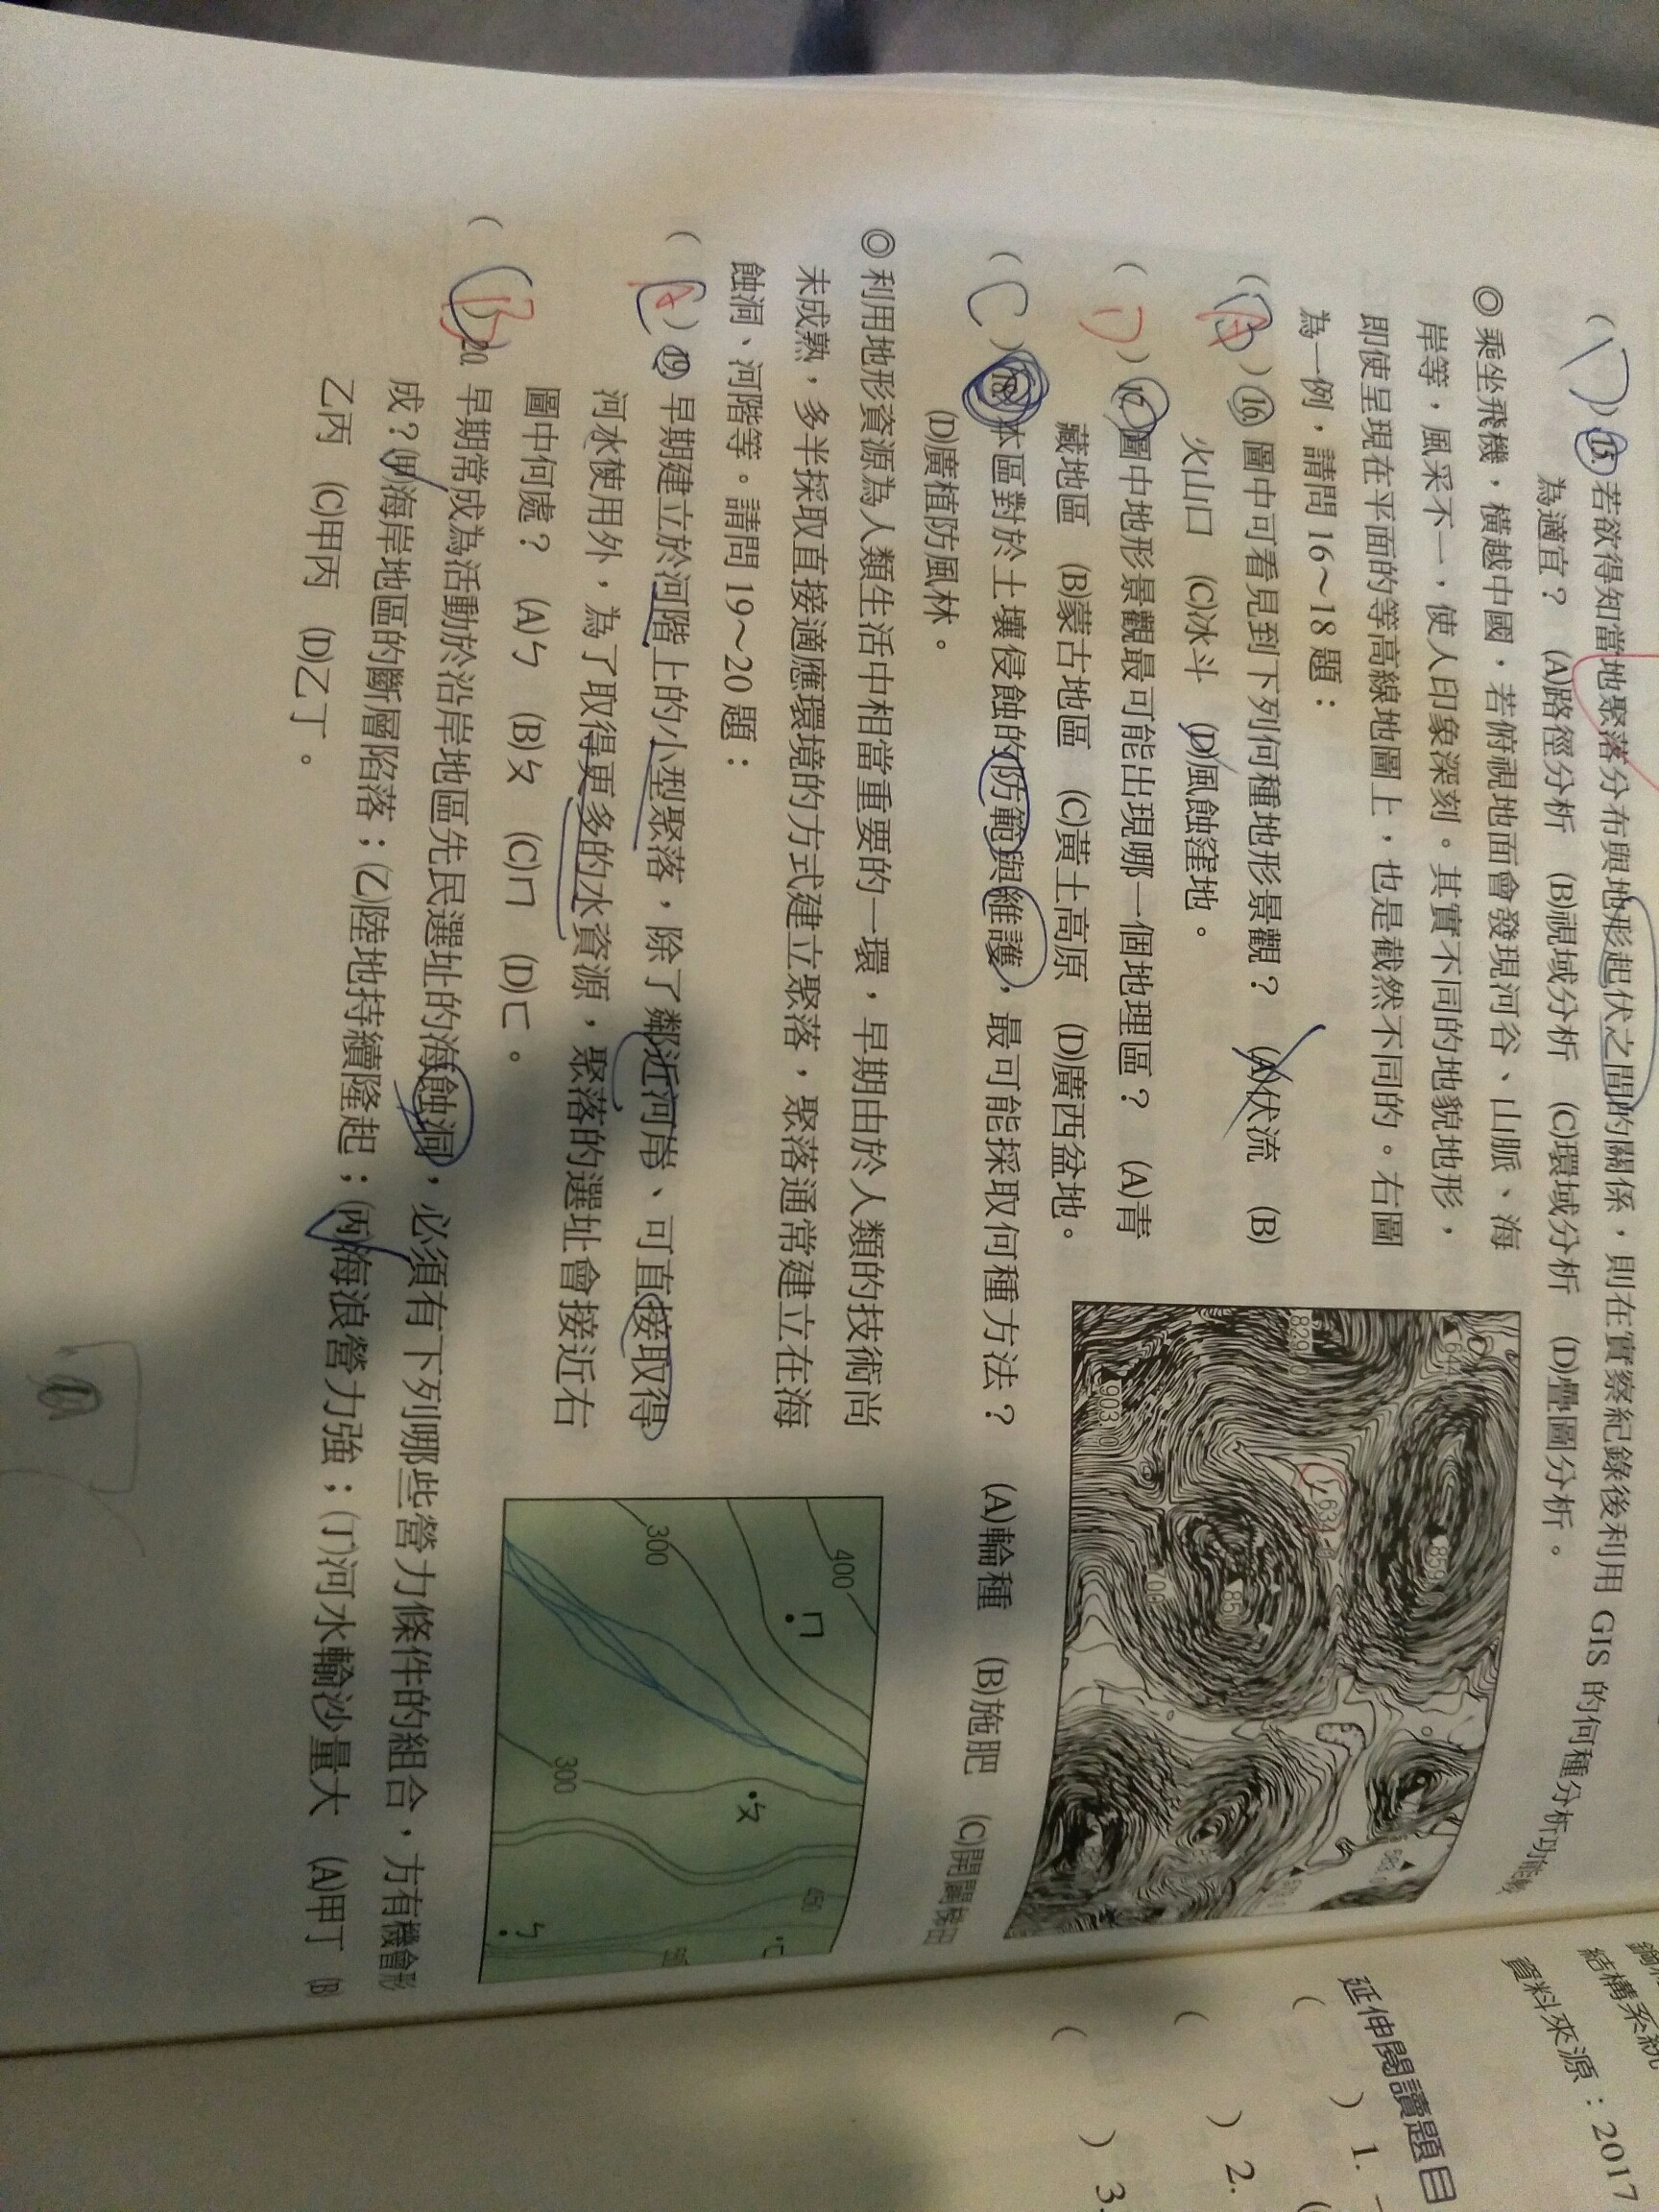 ( D ) 15. 若欲得知當地聚落分布與地形起伏之間的關係，則在實察紀錄後利用 GIS 的何種分析功能
為適宜？ (A)路徑分析 (B)視域分析 (C)環域分析 (D)疊圖分析。
◎ 乘坐飛機，橫越中國，若俯視地面會發現河谷、山脈、海
岸等，風采不一，使人印象深刻。其實不同的地貌地形，
即使呈現在平面的等高線地圖上，也是截然不同的。右圖
為一例，請問 16～18 題：
( A ) 16. 圖中可看見到下列何種地形景觀？ (A)伏流 (B)
火山口 (C)冰斗 (D)風蝕窪地。
( D ) 17. 圖中地形景觀最可能出現哪一個地理區？ (A)青
藏地區 (B)蒙古地區 (C)黃土高原 (D)廣西盆地。
( C ) 18. 本區對於土壤侵蝕的防範與維護，最可能採取何種方法？ (A)輪種 (B)施肥 (C)開闢梯田
(D)廣植防風林。
◎ 利用地形資源為人類生活中相當重要的一環，早期由於人類的技術尚
未成熟，多半採取直接適應環境的方式建立聚落，聚落通常建立在海
蝕洞、河階等。請問 19～20 題：
( ) 19. 早期建立於河階上的小型聚落，除了鄰近河岸、可直接取得
河水使用外，為了取得更多的水資源，聚落的選址會接近右
圖中何處？ (A)ㄅ (B)ㄆ (C)ㄇ (D)ㄈ。
( B ) 20. 早期常成為活動於沿岸地區先民選址的海蝕洞，必須有下列哪些營力條件的組合，方有機會形
成？(甲)海岸地區的斷層陷落；(乙)陸地持續隆起；(丙)海浪營力強；(丁)河水輸沙量大 (A)甲丁 (B)
乙丙 (C)甲丙 (D)乙丁。
829.0
903.0
634
859
400
ㄇ
300
300
ㄆ
450
ㄈ
ㄅ
結構系統
資料來源：2017
延伸閱讀題目
( ) 1.
( ) 2.
( ) 3.